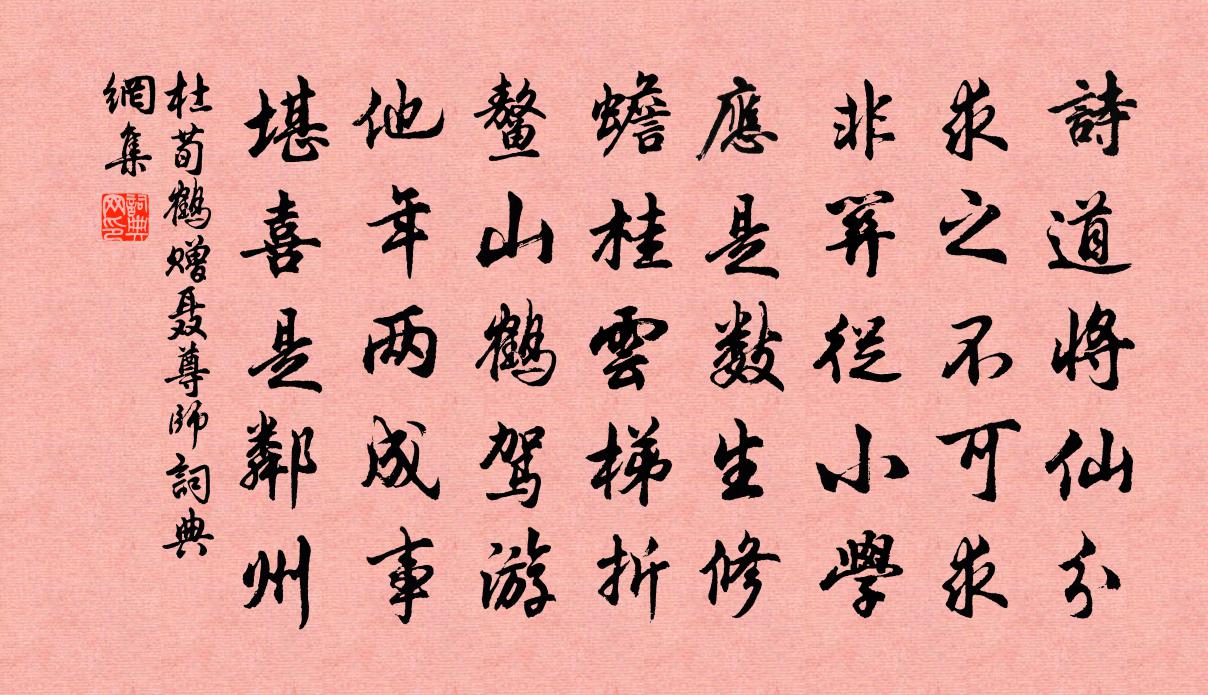 詩道將仙分
求之不可求
非關從小學
應是數生修
蟾桂雲梯折
鰲山鶴駕游
他年两成事
堪喜是鄰州
杜荀鶴赠聂尊師詞典
網集
詞典
网印